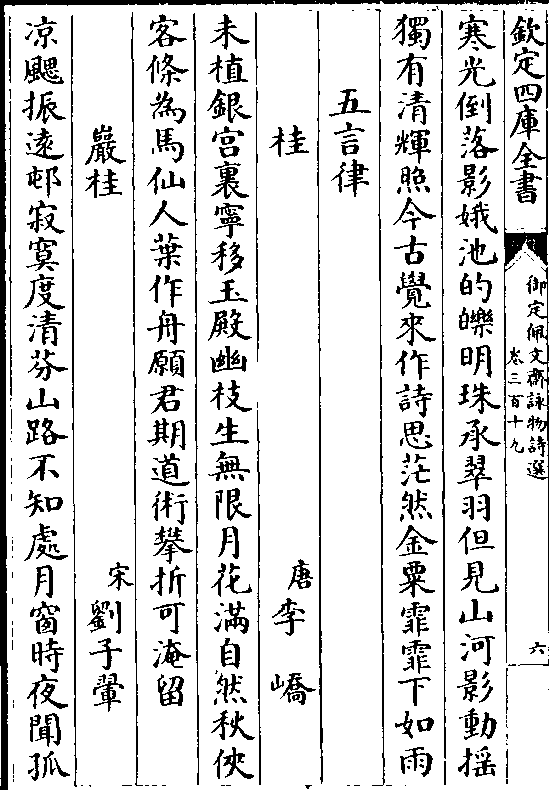 欽定四庫全書
御定佩文齋詠物詩選
卷三百十九
六
寒光倒落影娥池的皪明珠承翠羽但見山河影動揺
獨有清輝照今古覺來作詩思茫然金粟霏霏下如雨
五言律
桂
唐李嶠
未植銀宫裏寧移玉殿幽枝生無限月花滿自然秋俠
客條為馬仙人葉作舟願君期道術攀折可淹留
巖桂
宋劉子翬
凉颸振遠邨寂寞度清芬山路不知處月窗時夜聞孤